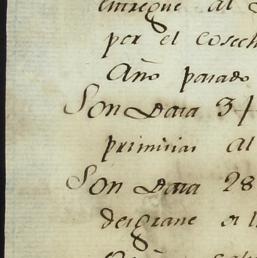 entregue al
por el cosech
Año pasado
Son Data 3/
primicias al
Son Data 28
desgrane el